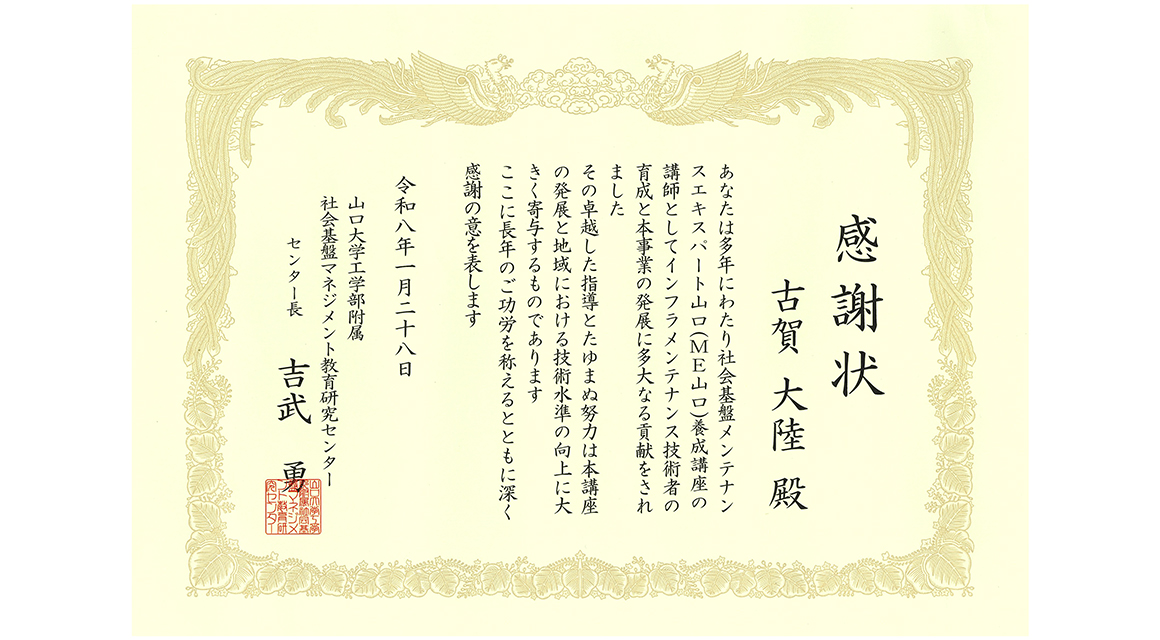 感謝状
古賀 大陸 殿
あなたは多年にわたり社会基盤メンテナン
スエキスパート山口(ME山口)養成講座の
講師としてインフラメンテナンス技術者の
育成と本事業の発展に多大なる貢献をされ
ました
その卓越した指導とたゆまぬ努力は本講座
の発展と地域における技術水準の向上に大
きく寄与するものであります
ここに長年のご功労を称えるとともに深く
感謝の意を表します
令和八年一月二十八日
山口大学工学部附属
社会基盤マネジメント教育研究センター
センター長 吉武 勇